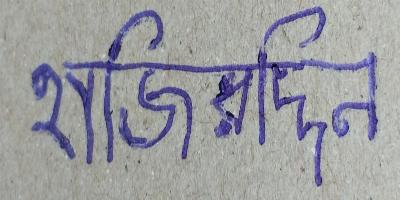 হাজিরদ্দিন